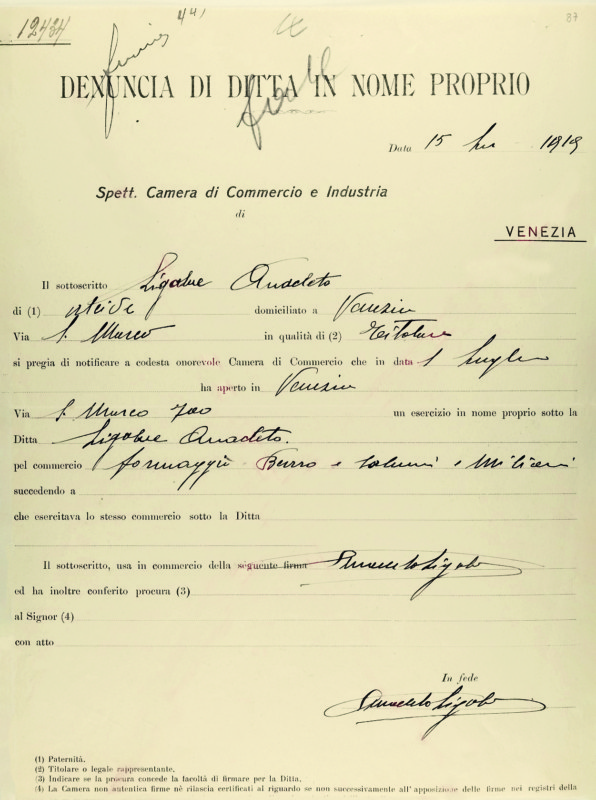 12434
87
DENUNCIA DI DITTA IN NOME PROPRIO
Data 15 1919
Spett. Camera di Commercio e Industria
di
VENEZIA
Il sottoscritto Ligabue Anacleto
di (1) domiciliato a Venezia
Via S. Marco in qualità di (2) Titolare
si pregia di notificare a codesta onorevole Camera di Commercio che in data 1 Luglio
ha aperto in Venezia
Via S. Marco 700 un esercizio in nome proprio sotto la
Ditta Ligabue Anacleto.
pel commercio formaggi Burro e salumi e
succedendo a
che esercitava lo stesso commercio sotto la Ditta
Il sottoscritto, usa in commercio della seguente firma Anacleto Ligabue
ed ha inoltre conferito procura (3)
al Signor (4)
con atto
In fede
Anacleto Ligabue
(1) Paternità.
(2) Titolare o legale rappresentante.
(3) Indicare se la procura concede la facoltà di firmare per la Ditta.
(4) La Camera non autentica firme nè rilascia certificati al riguardo se non successivamente all'apposizione delle firme nei registri della